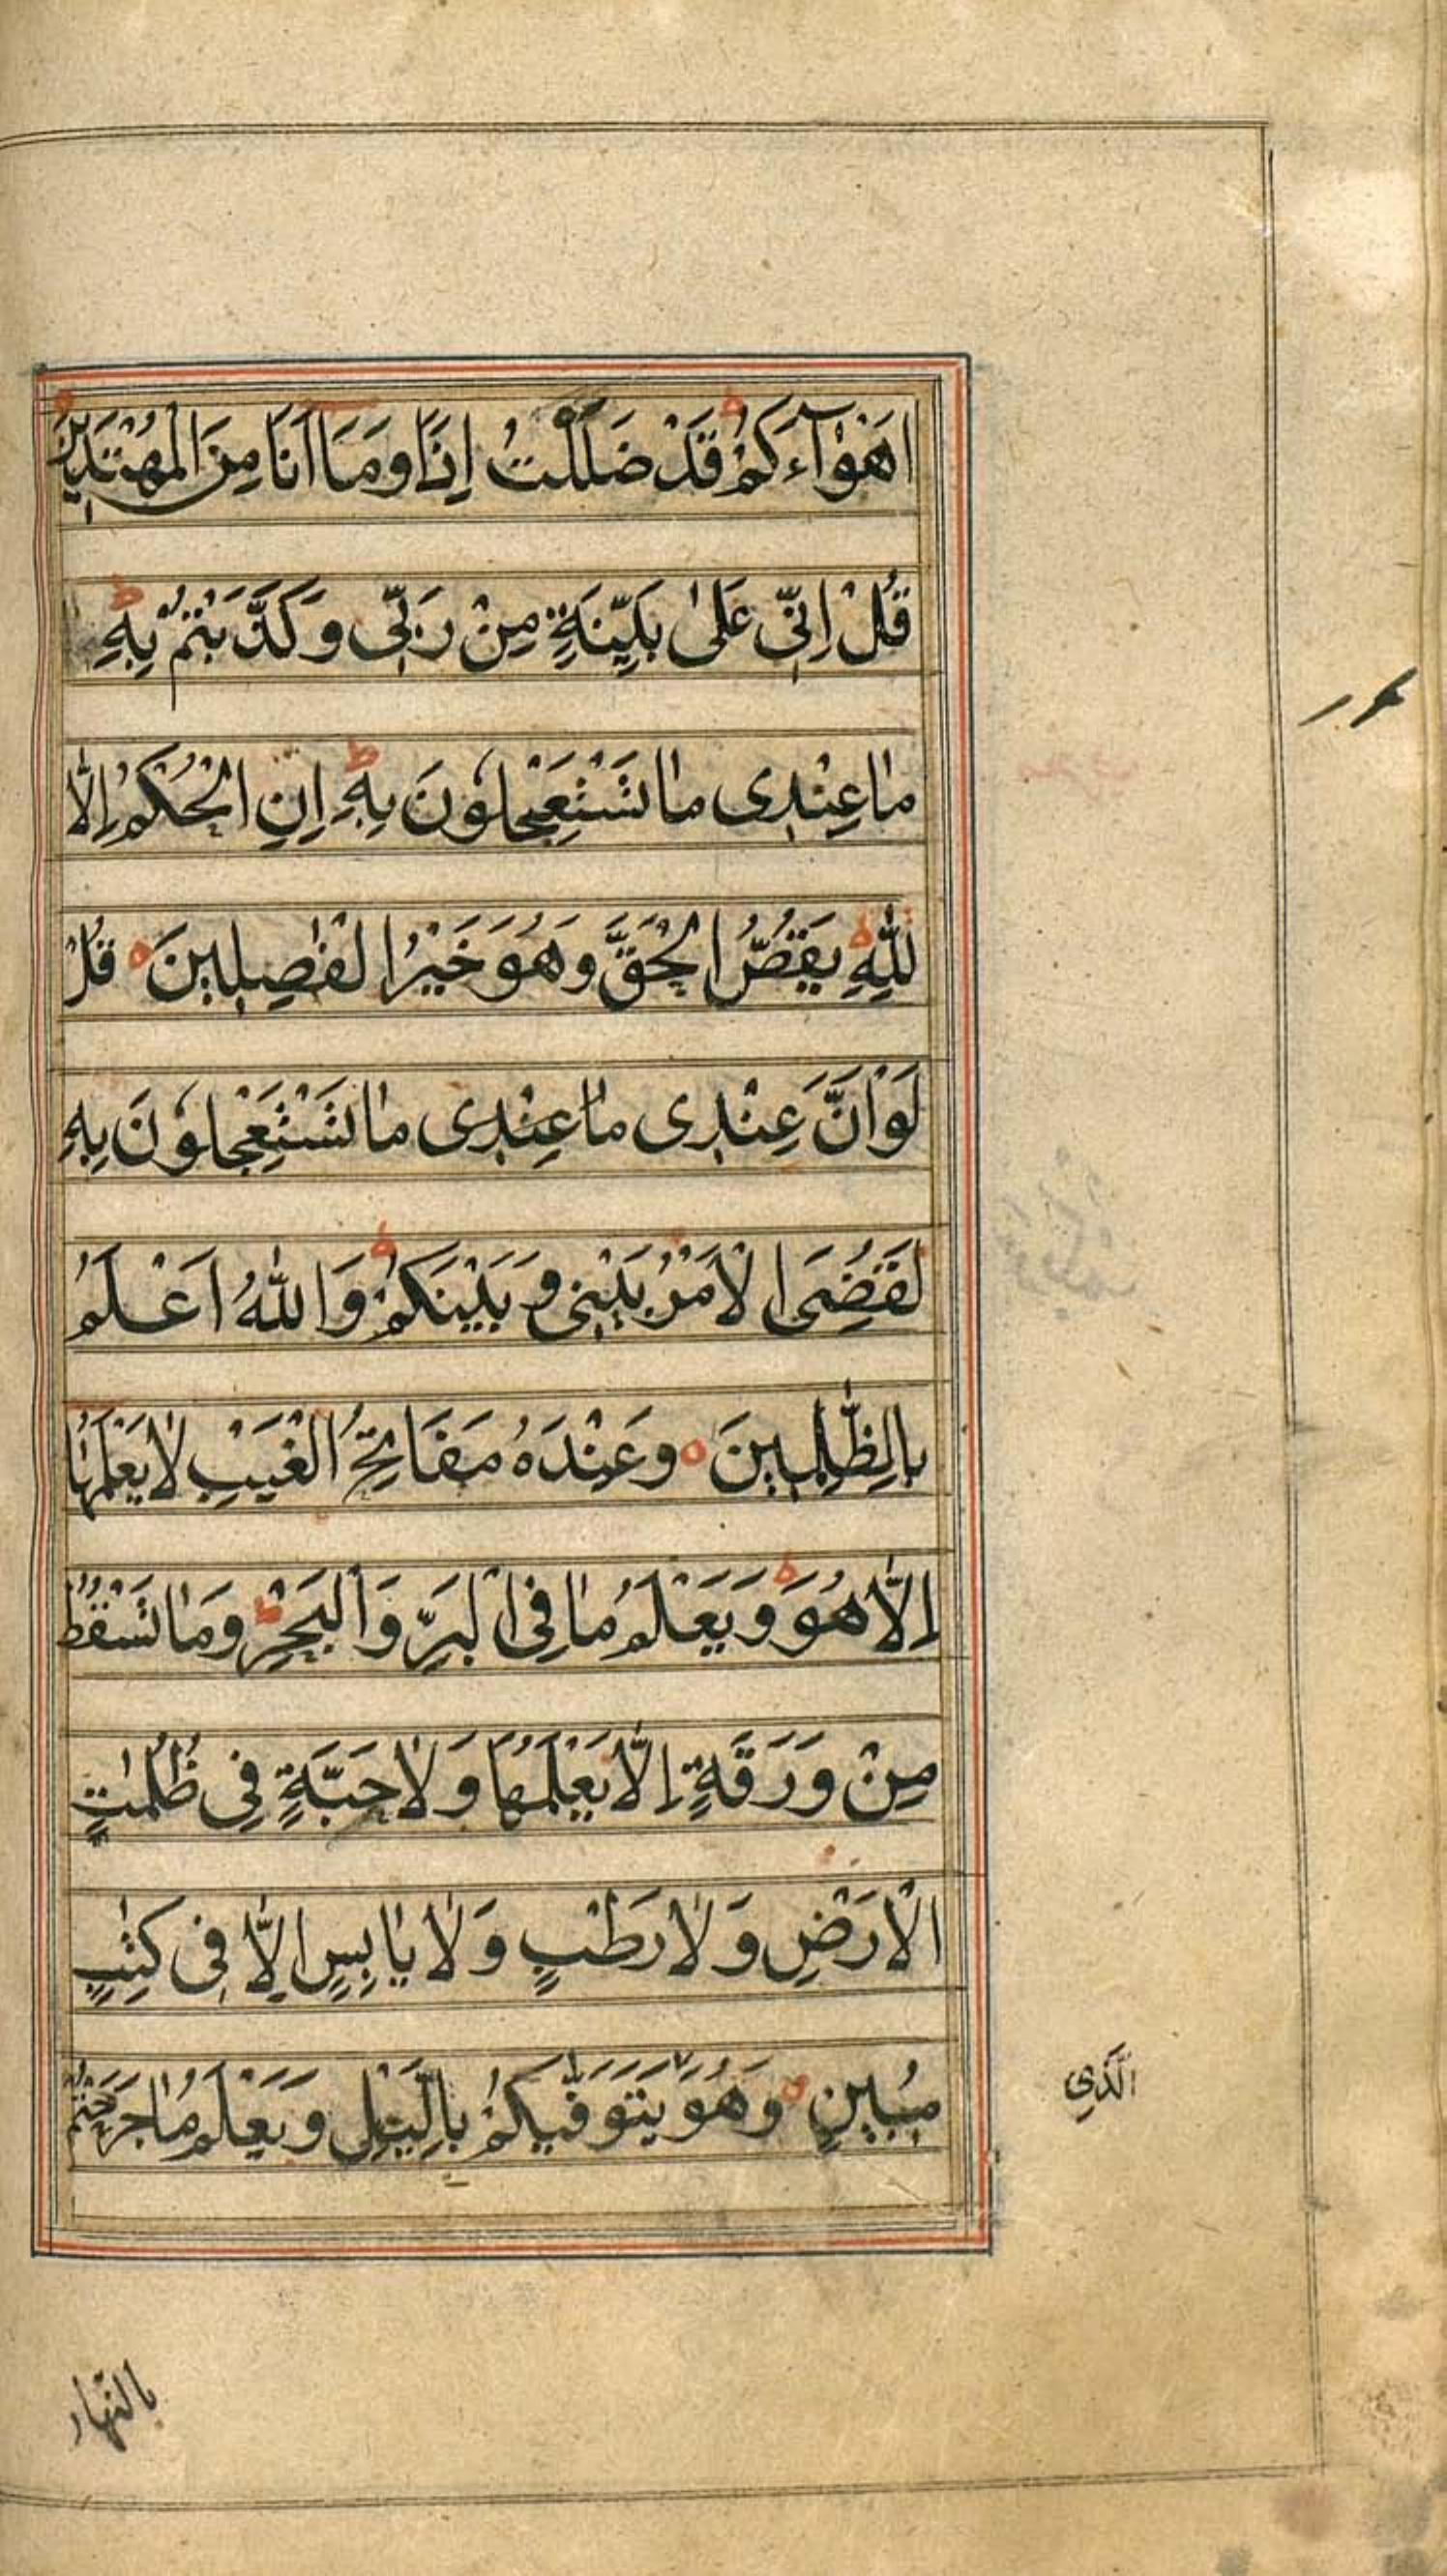 اَهْوَآءَكُمْ قَدْ ضَلَلْتُ اِذًا وَمَا اَنَا مِنَ الْمُهْتَدِيْنَ
قُلْ اِنِّى عَلٰى بَيِّنَةٍ مِنْ رَبِّى وَكَذَّبْتُمْ بِهٖ ط
مَا عِنْدِى مَا تَسْتَعْجِلُوْنَ بِهٖ ط اِنِ الْحُكْمُ اِلَّا
لِلّٰهِ يَقُصُّ الْحَقَّ وَهُوَ خَيْرُ الْفٰصِلِيْنَ ه قُلْ
لَوْ اَنَّ عِنْدِى مَا عِنْدِى مَا تَسْتَعْجِلُوْنَ بِهٖ
لَقُضِىَ الْاَمْرُ بَيْنِى وَبَيْنَكُمْ وَاللّٰهُ اَعْلَمُ
بِالظّٰلِمِيْنَ ه وَعِنْدَهُ مَفَاتِحُ الْغَيْبِ لَا يَعْلَمُهَا
اِلَّا هُوَ وَيَعْلَمُ مَا فِى الْبَرِّ وَالْبَحْرِ ط وَمَا تَسْقُطُ
مِنْ وَرَقَةٍ اِلَّا يَعْلَمُهَا وَلَا حَبَّةٍ فِى ظُلُمٰتِ
الْاَرْضِ وَلَا رَطْبٍ وَلَا يَابِسٍ اِلَّا فِى كِتٰبٍ
مُبِيْنٍ ه وَهُوَ يَتَوَفّٰيكُمْ بِالَّيْلِ وَيَعْلَمُ مَا جَرَحْتُمْ
الَّذِى
بالنهار